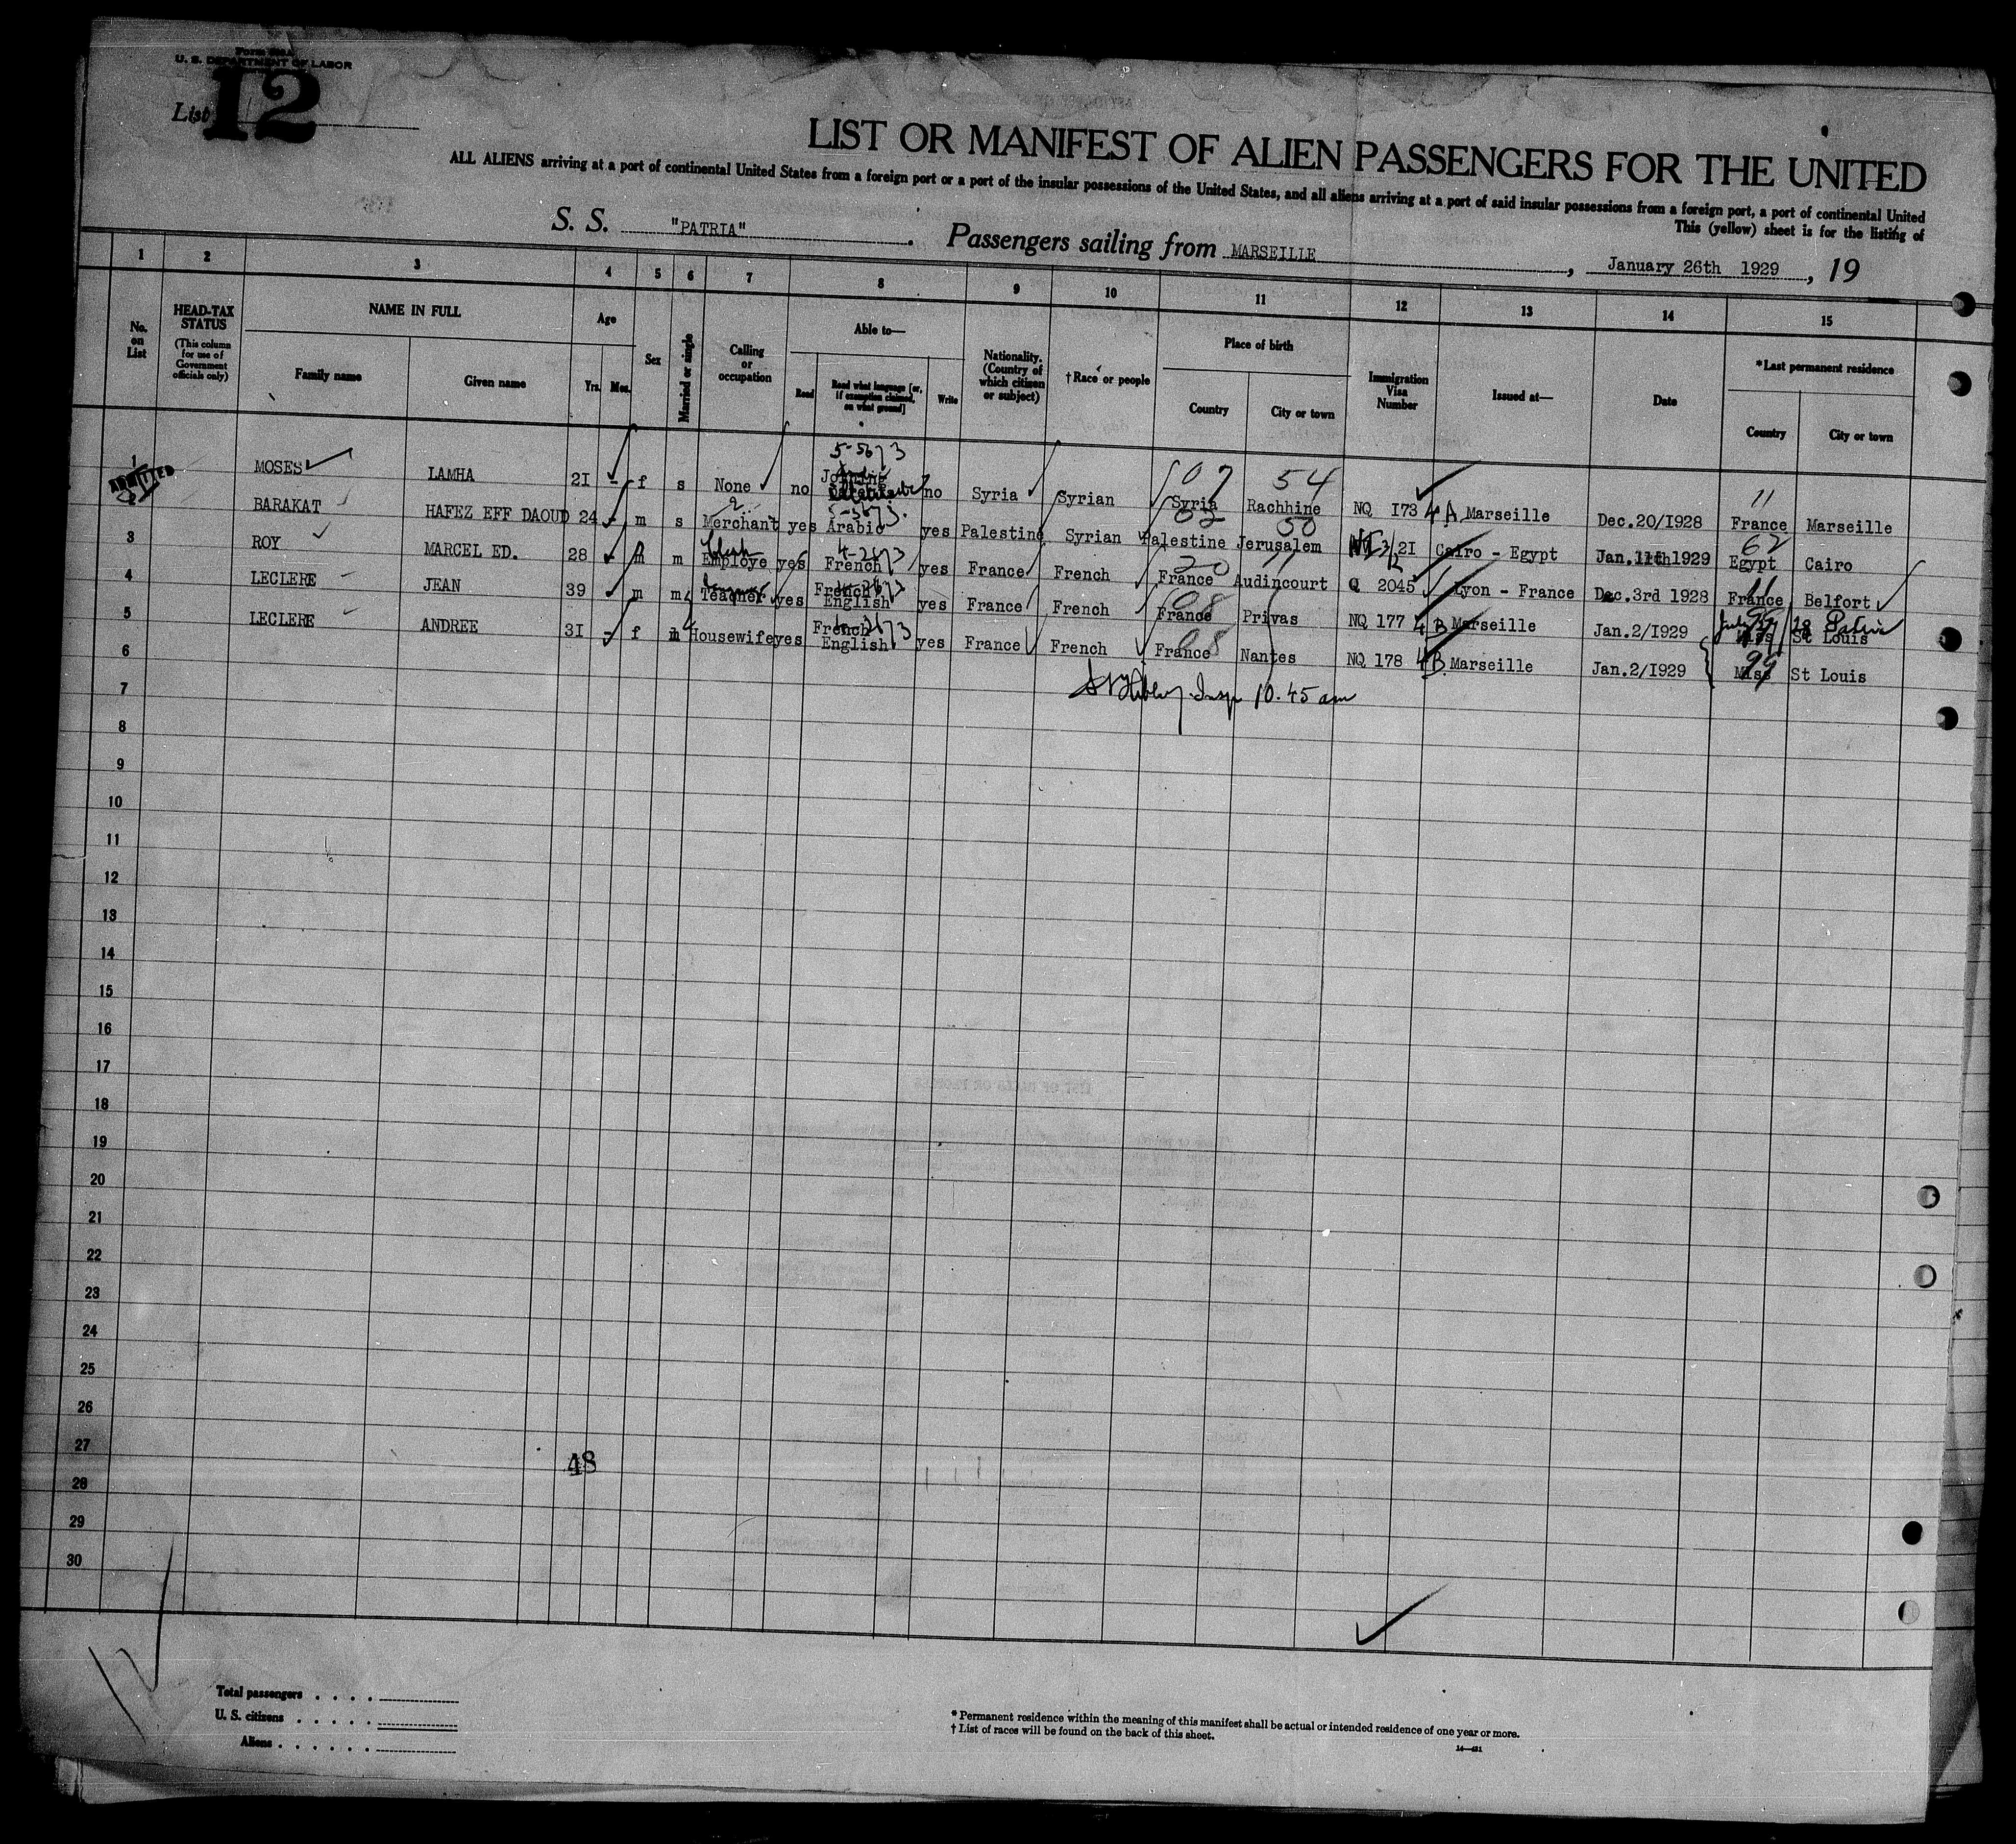 Form
U. S. DEPARTMENT OF LABOR
List 12
LIST OR MANIFEST OF ALIEN PASSENGERS FOR THE UNITED
ALL ALIENS arriving at a port of continental United States from a foreign port or a port of the insular possessions of the United States, and all aliens arriving at a port of said insular possessions from a foreign port, a port of continental United
This (yellow) sheet is for the listing of
S. S. "PATRIA". Passengers sailing from MARSEILLE, January 26th 1929, 19
1 2 3 4 5 6 7 8 9 10 11 12 13 14 15
No. on List
HEAD-TAX STATUS
(This column for use of Government officials only)
NAME IN FULL
Family name
Given name
Age
Yrs. Mos.
Sex
Married or single
Calling or occupation
Able to—
Read
Read what language [or, if exemption claimed, on what ground]
Write
Nationality. (Country of which citizen or subject)
†Race or people
Place of birth
Country
City or town
Immigration Visa Number
Issued at—
Date
*Last permanent residence
Country
City or town
5-5673
07 54 11
1 MOSES LAMHA 2I - f s None no Joining no Syria Syrian Syria Rachhine NQ I73 4 A Marseille Dec.20/I928 France Marseille
ADMITTED
2 BARAKAT HAFEZ EFF DAOUD 24 - m s Merchant yes Arabic yes Palestine Syrian Palestine Jerusalem 2I Cairo - Egypt Jan.11th 1929 Egypt Cairo
3 ROY MARCEL ED. 28 - m m Employe yes French yes France French France Audincourt Q 2045 Lyon - France Dec.3rd 1928 France Belfort
4 LECLERE JEAN 39 m m Teacher yes French English yes France French France Privas NQ 177 4 B Marseille Jan.2/I929 Miss St Louis
5 LECLERE ANDREE 3I - f m Housewife yes French English yes France French France Nantes NQ 178 4 B Marseille Jan.2/I929 Miss St Louis
6
Insp 10.45 am
7
8
9
10
11
12
13
14
15
16
17
18
19
20
21
22
23
24
25
26
27
48
28
29
30
Total passengers
U. S. citizens
Aliens
* Permanent residence within the meaning of this manifest shall be actual or intended residence of one year or more.
† List of races will be found on the back of this sheet.